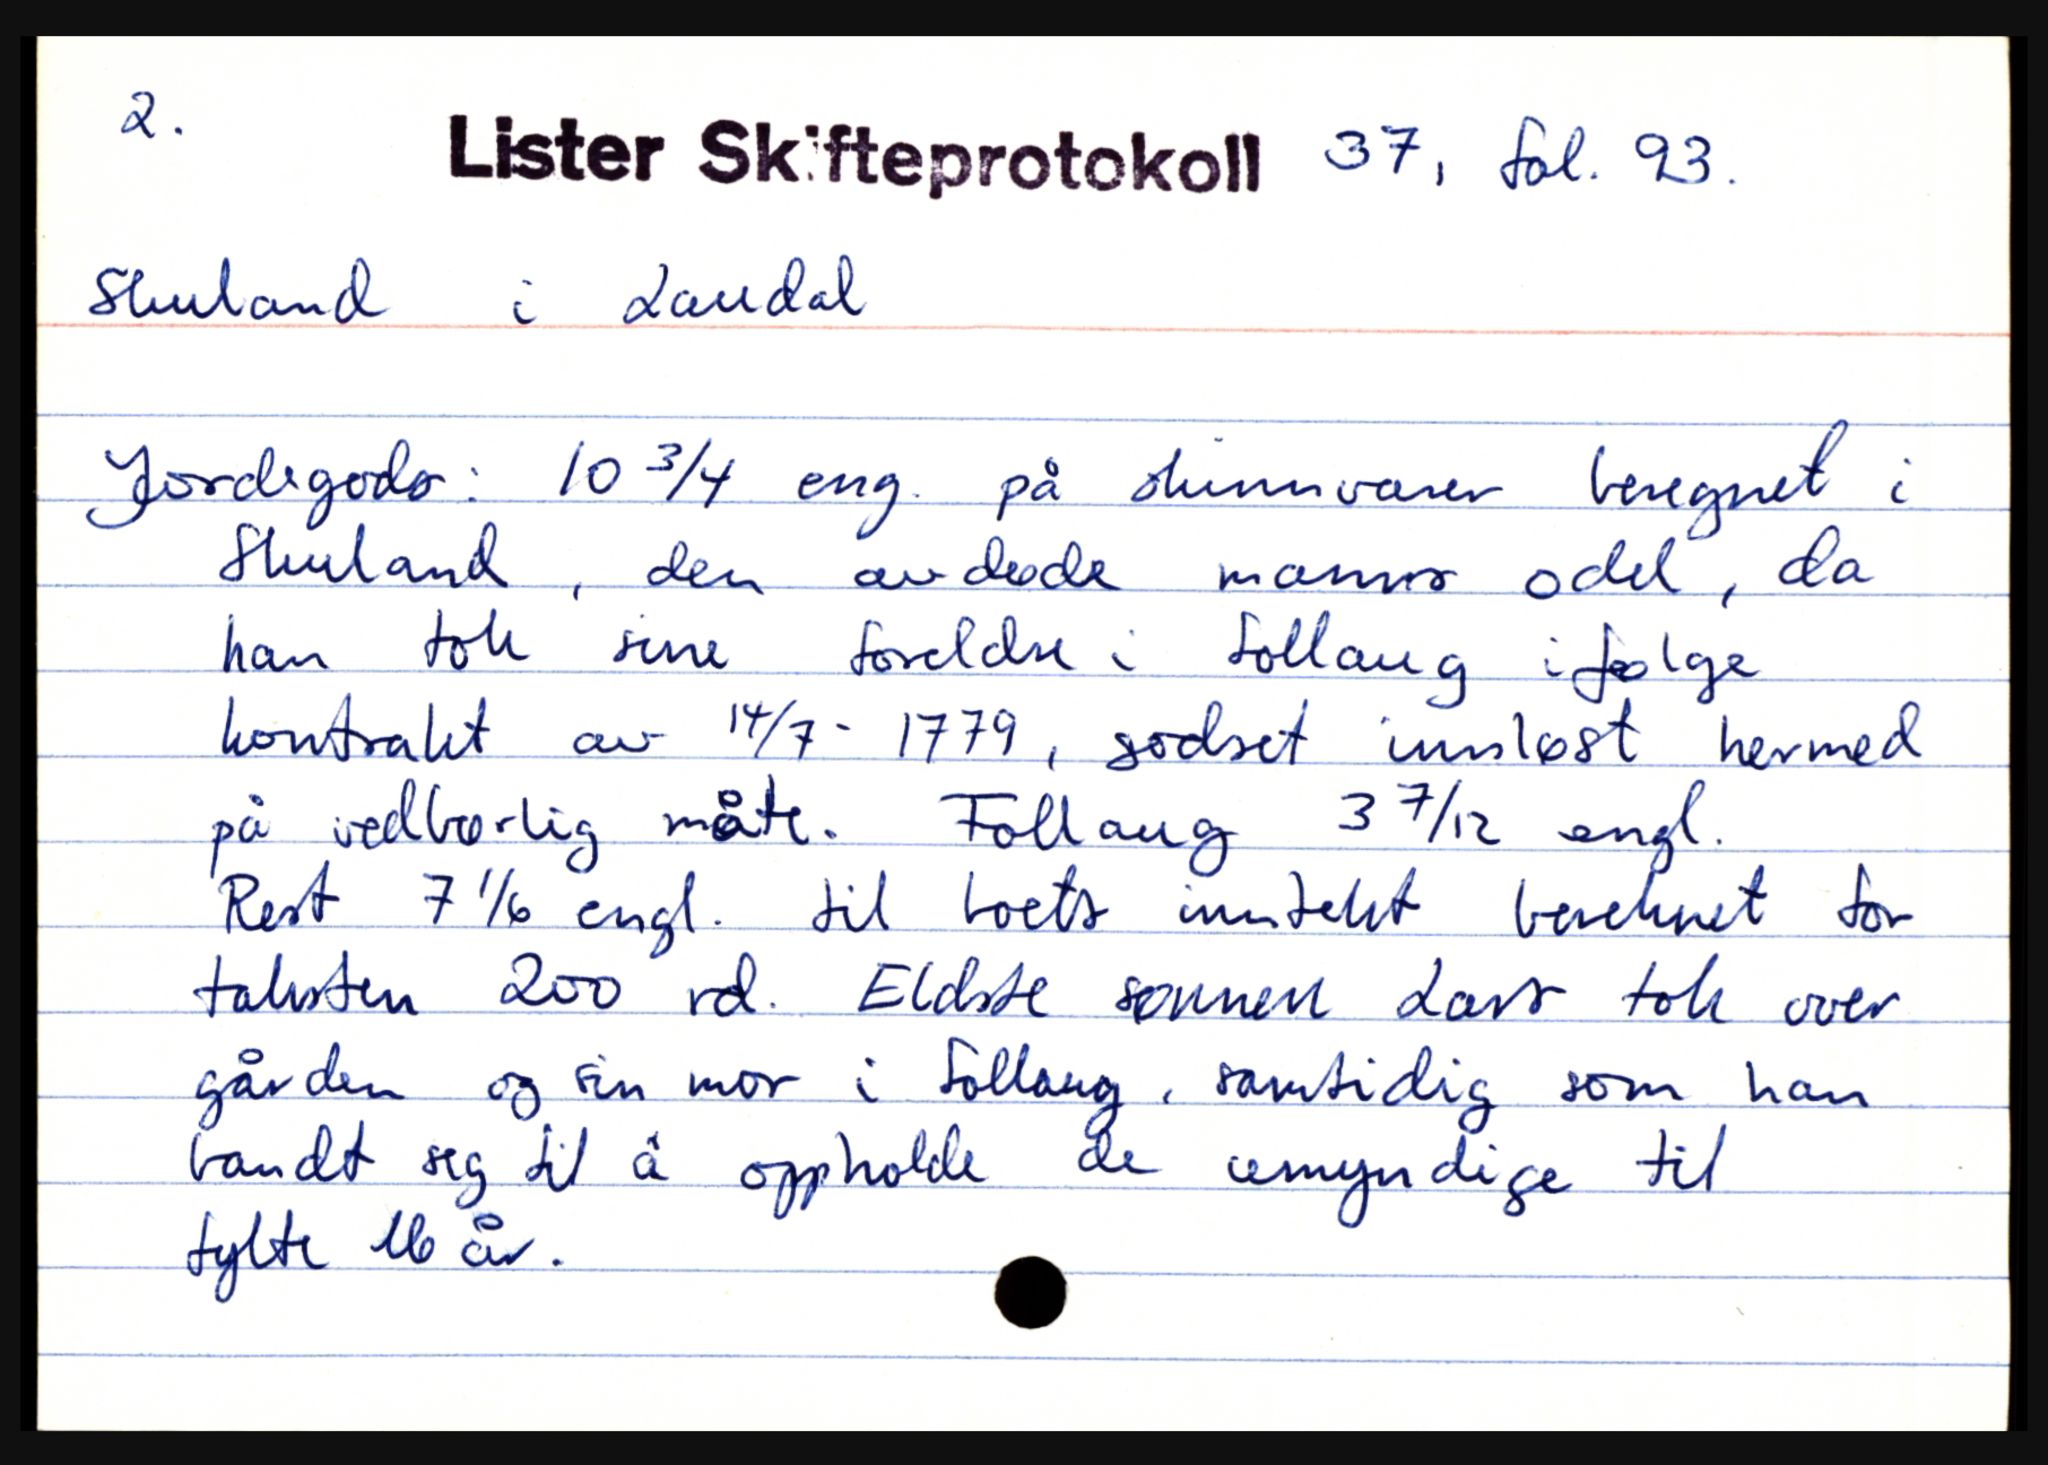 2.
Lister Skifteprotokoll 37, fol. 93.
Skuland i Laudal
Jordegods: 10 3/4 eng. på skinnvarer beregnet i
Skuland, den avdøde manns odel, da
han tok sine foreldre i follaug ifølge
kontrakt av 14/7 - 1779, godset innløst hermed
på vedbørlig måte. Follaug 3 7/12 engl.
Rest 7 1/6 engl. til boets inntekt bereknet for
taksten 200 rd. Eldste sønnen Lars tok over
gården og sin mor i follaug, samtidig som han
bandt seg til å oppholde de umyndige til
fylte 16 år.